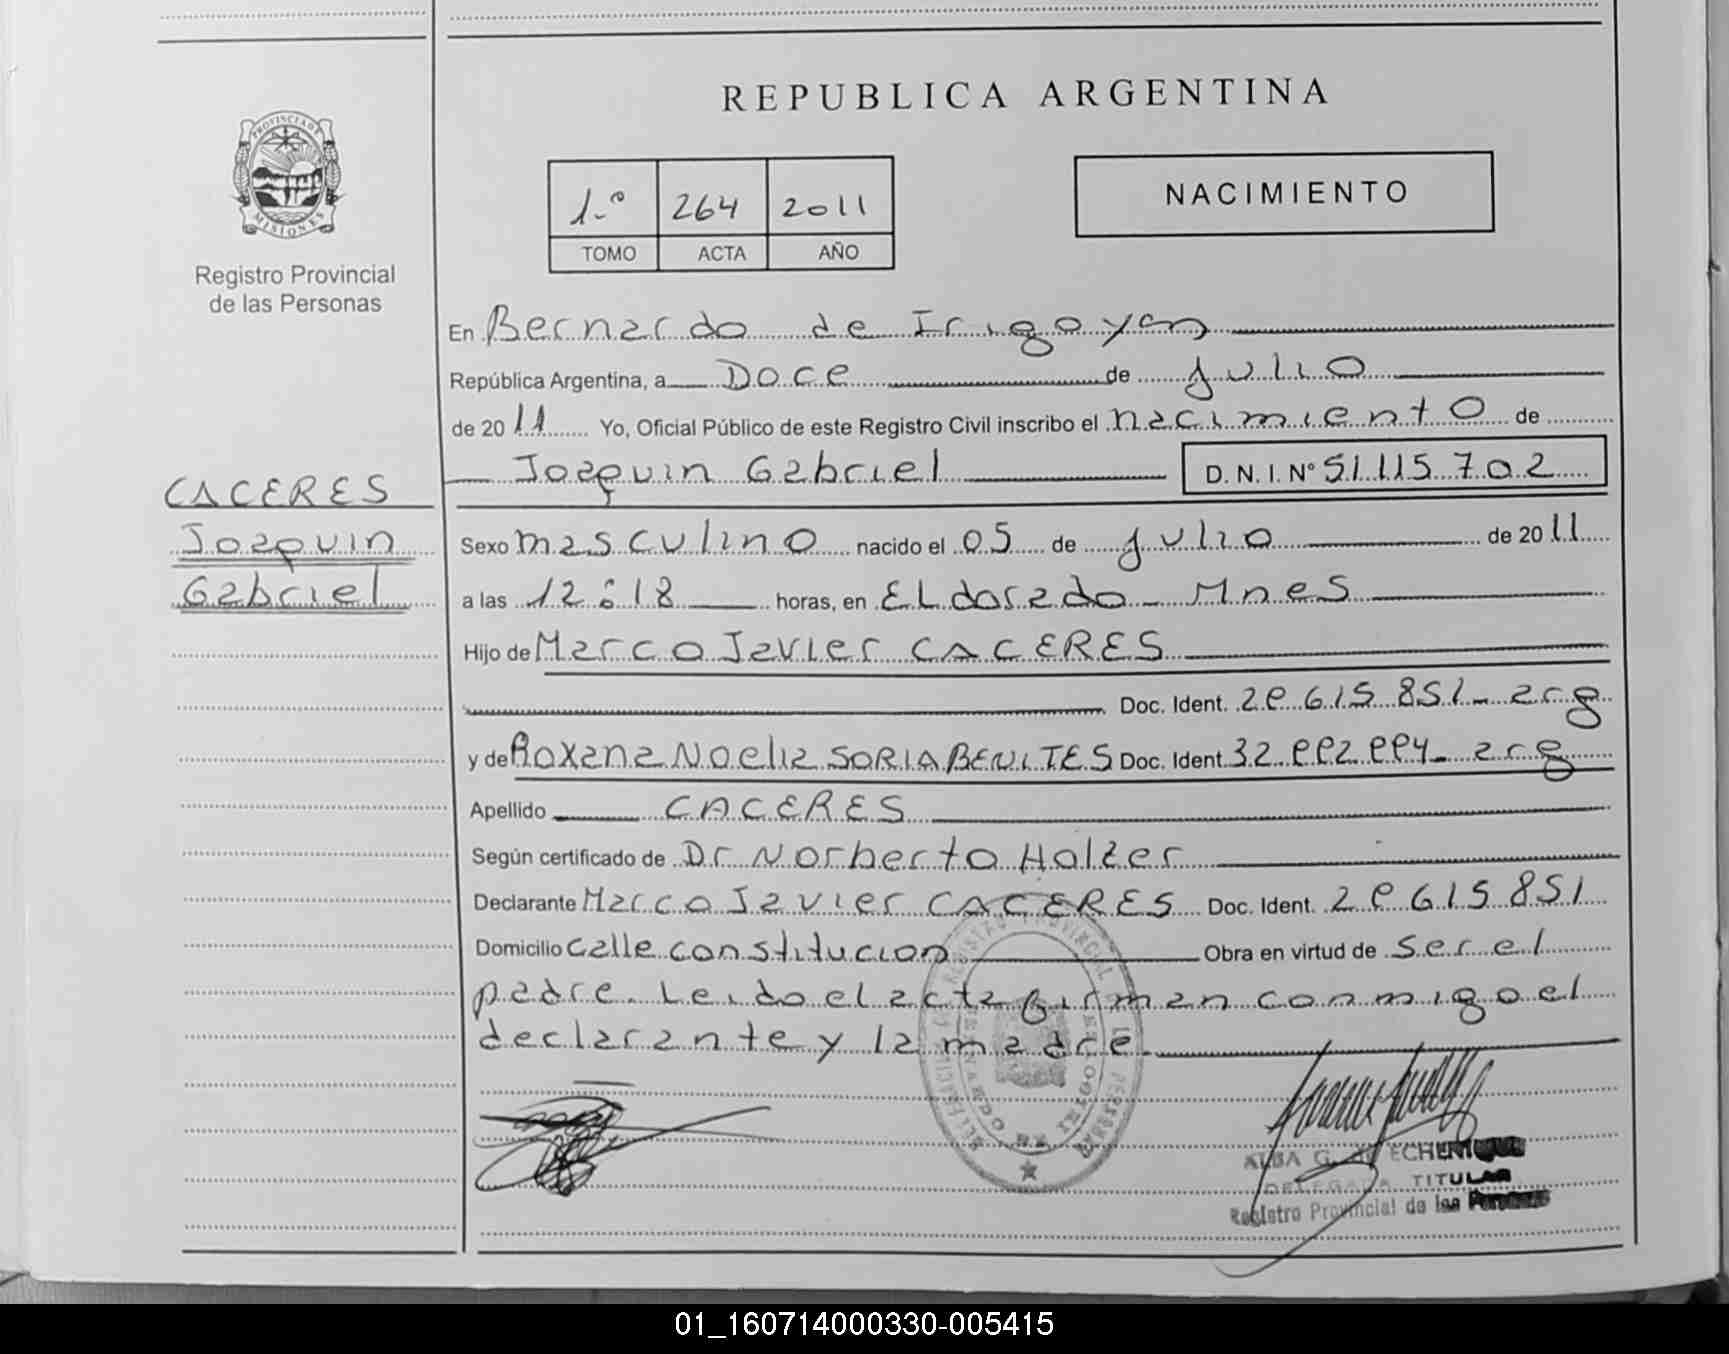 REPUBLICA ARGENTINA
PROVINCIA DE
MISIONES
Registro Provincial
de las Personas
1.º 264 2011
TOMO ACTA AÑO
NACIMIENTO
En Bernardo de Irigoyen
República Argentina, a Doce de julio
de 2011 Yo, Oficial Público de este Registro Civil inscribo el nacimiento de
Joaquin Gabriel D. N. I. Nº 51.115.702
CACERES
Joaquin
Gabriel
Sexo masculino nacido el 05 de julio de 2011
a las 12:18 horas, en ELdorado Mnes
Hijo de Marco Javier CACERES
Doc. Ident. 29.615.851 - arg
y de Roxana Noelia SORIA BENITES Doc. Ident. 32.992.994 - arg
Apellido CACERES
Según certificado de Dr Norberto Holzer
Declarante Marco Javier CACERES Doc. Ident. 29.615.851
Domicilio calle constitucion Obra en virtud de ser el
padre. Leido el acta firman conmigo el
declarante y la madre.
ALBA G. de
DELEGADA TITULAR
Registro Provincial de las Personas
01_160714000330-005415